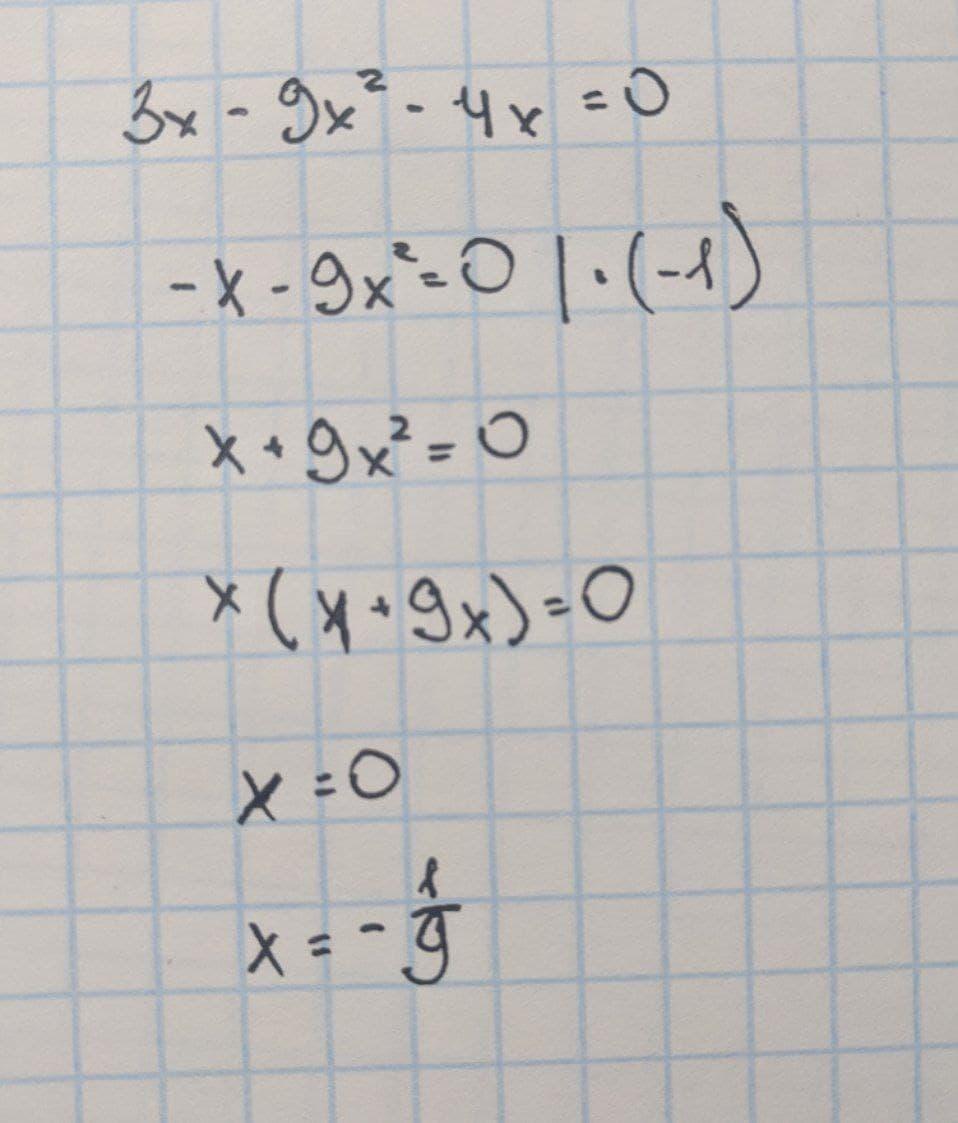 3x - 9x² - 4x = 0
-x - 9x² = 0 | · (-1)
x + 9x² = 0
x (1 + 9x) = 0
x = 0
x = - 1/9